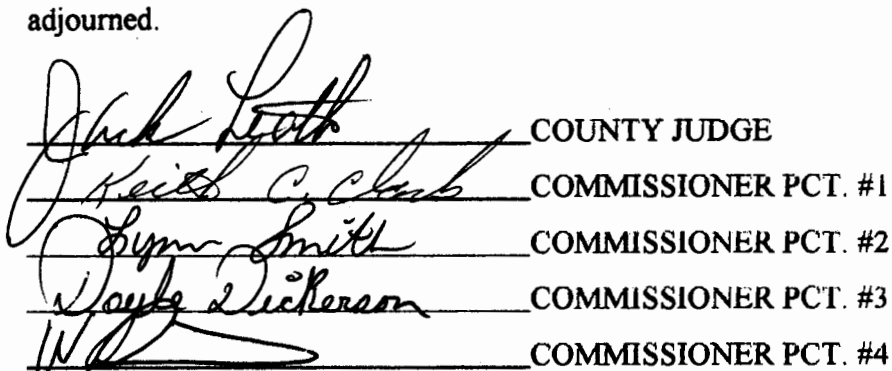 adjourned.
Jack Leath COUNTY JUDGE
Keith C. Clark COMMISSIONER PCT. #1
Lynn Smith COMMISSIONER PCT. #2
Doyle Dickerson COMMISSIONER PCT. #3
COMMISSIONER PCT. #4